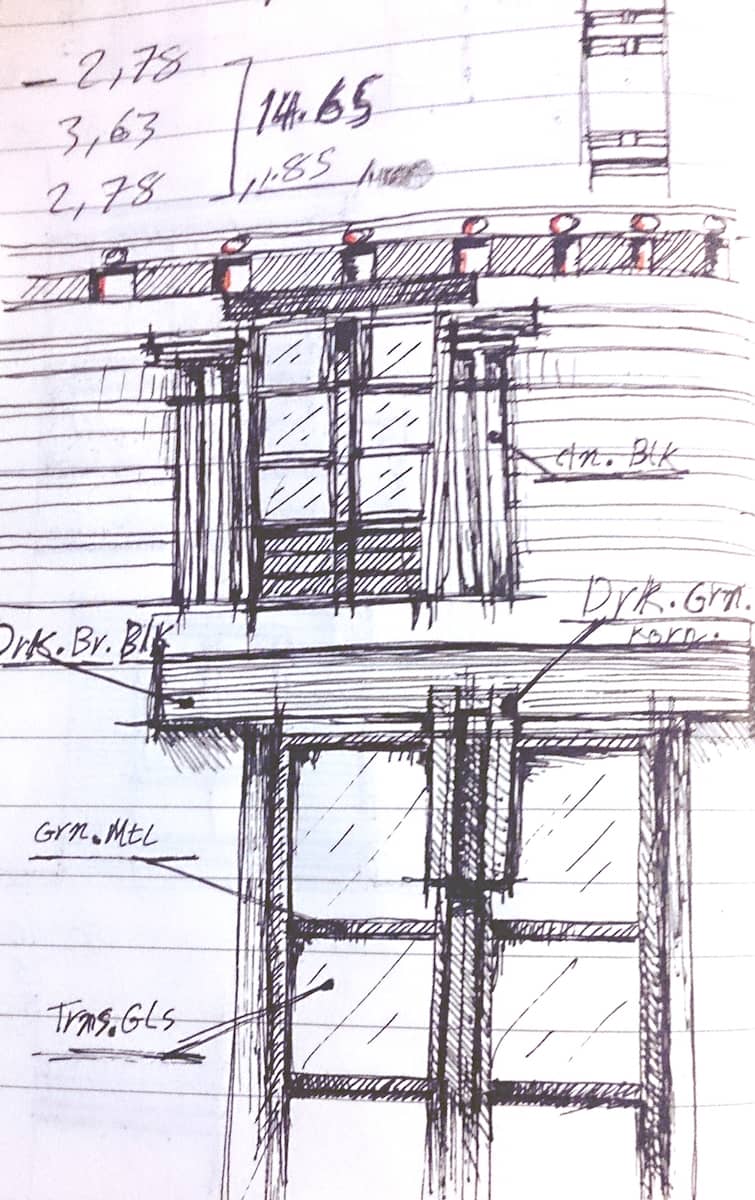 - 2,78
3,63
2,78
14.65
1.85
Cln. Blk
Drk. Grn.
Drk. Br. Blk
Grn. Mtl
Trns. GLs